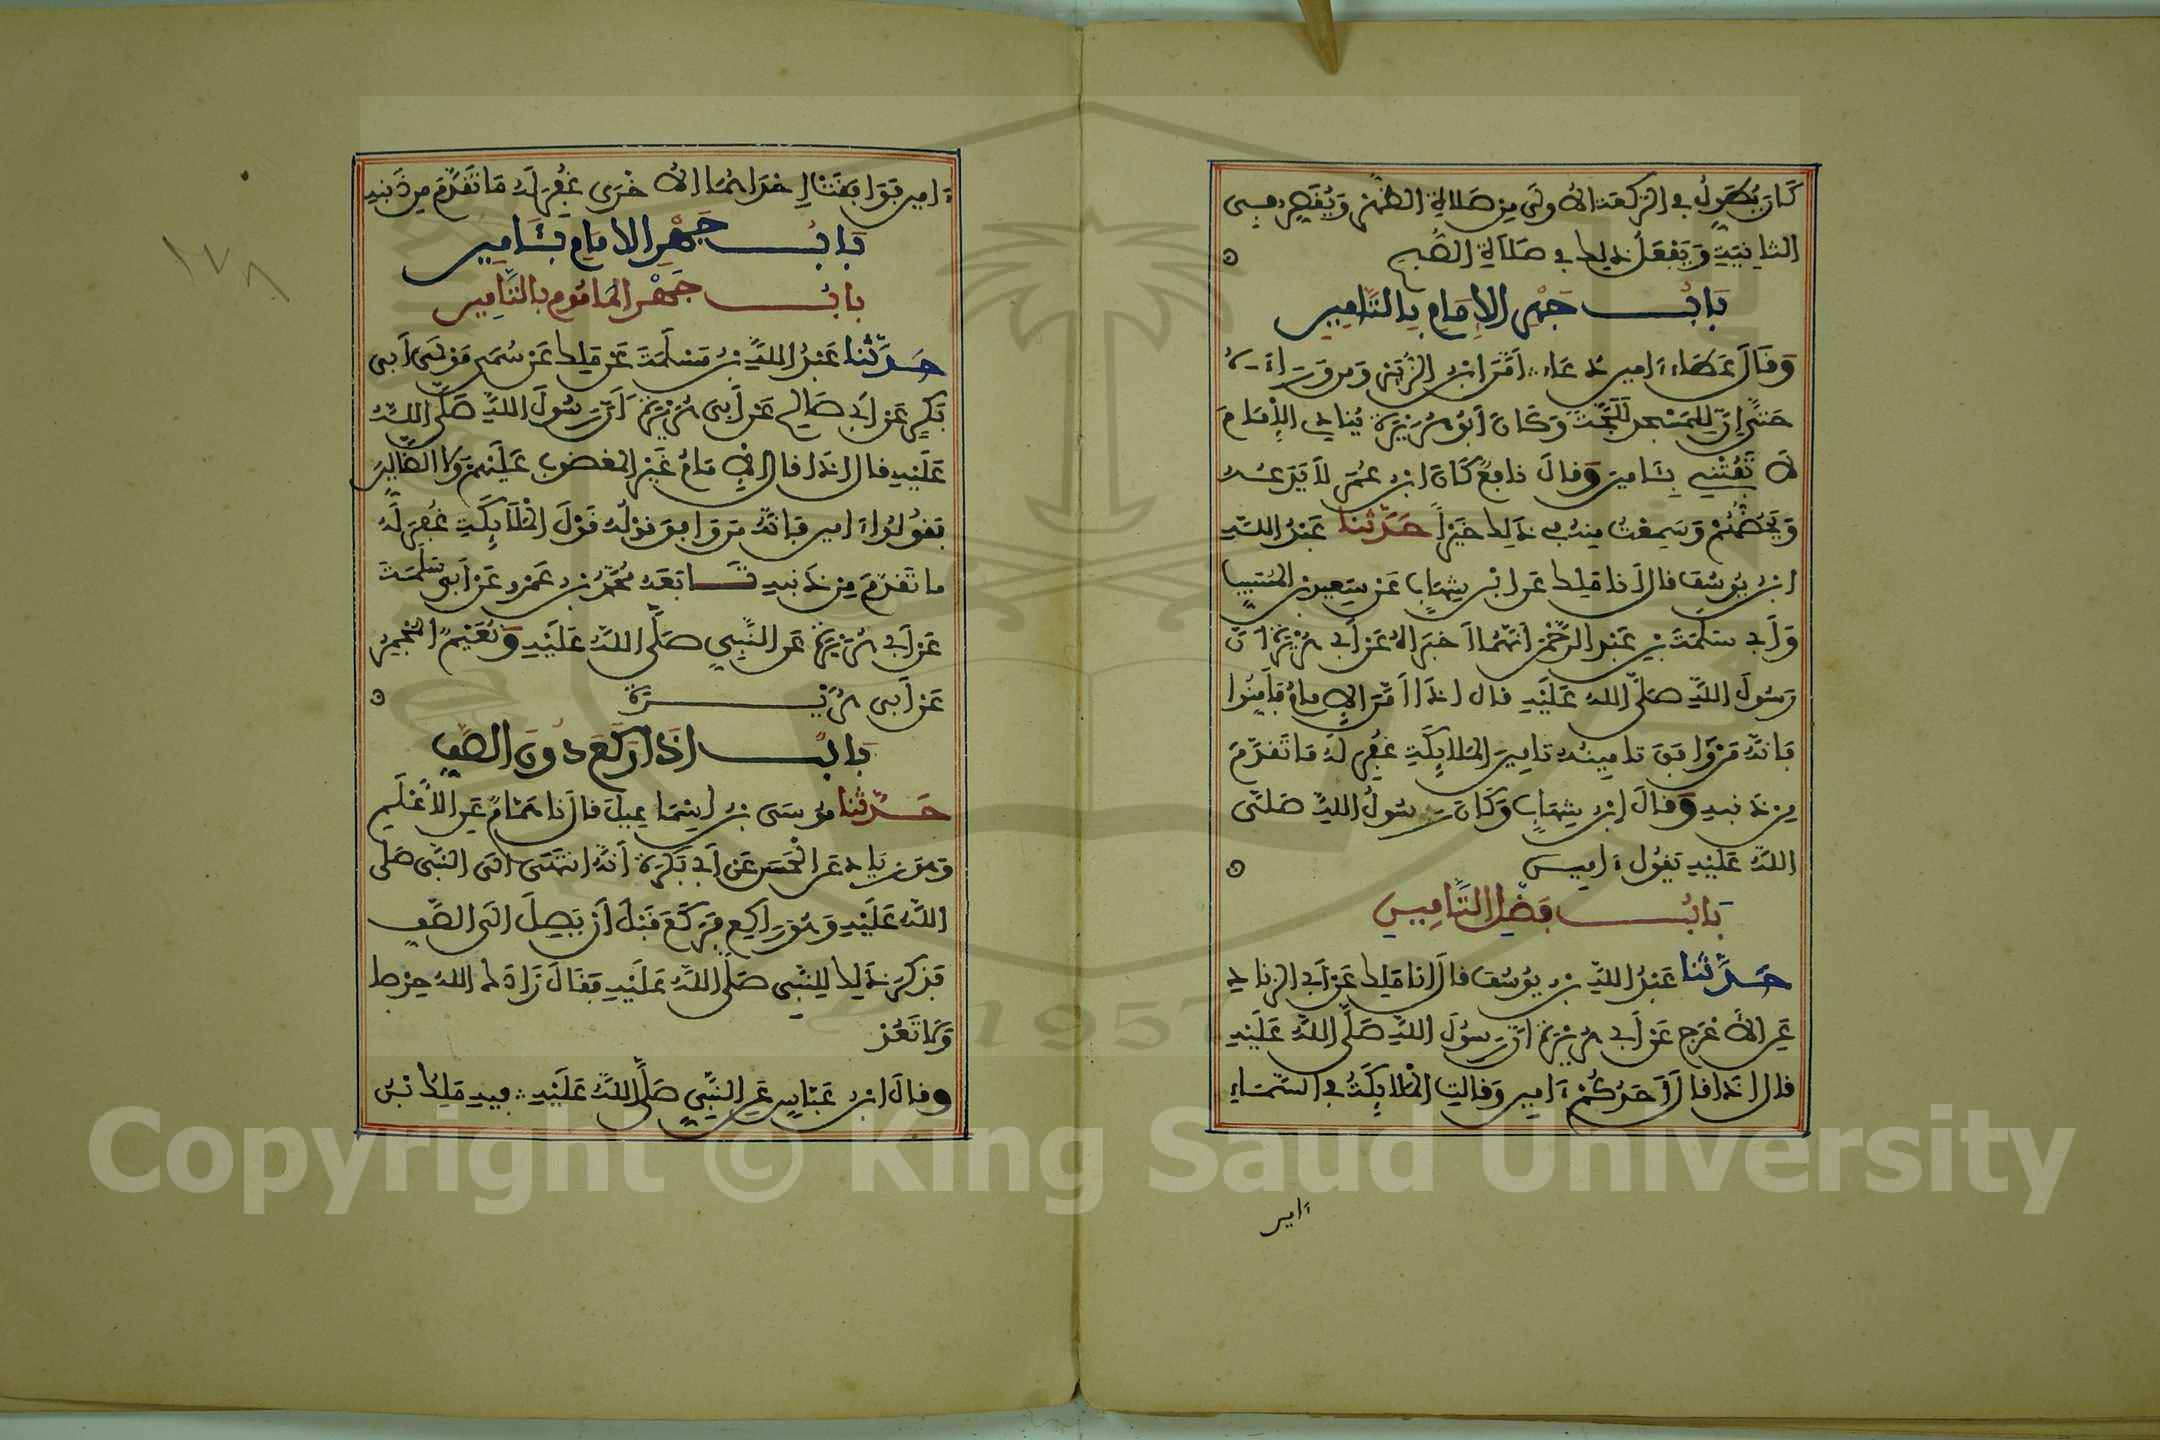 كَانَ يُطَوِّلُ في الرَّكعة الأولَى مِن صَلاةِ الظُّهْرِ وَيُقَصِّر في
الثانِيَةِ وَيَفْعَلُ ذلِك في صَلَاةِ الصُّبحِ
بَابُ جَهْرِ الإِمَامِ بِالتَّامِينِ
وَقَالَ عَطَاء ءامين دُعَاء أمَّنَ ابن الزُّبَيْرِ وَمن وَرَاءَهُ
حَتَّى إنَّ لِلمَسْجِدِ لَلَجَّةً وَكَانَ أَبُو هُرَيْرَةَ يُنادِي الإِمَامَ
لَا تَفُتْنِي بِئَامِينَ وَقالَ نافِعٌ كَانَ ابن عُمَرَ لَا يَدَعُهُ
وَيَحُضُّهُمْ وَسَمِعْتُ مِنْهُ في ذَلِكَ خَيْرًا حَدَّثَنا عَبْدُ اللهِ
ابن يُوسُفَ قال أنا مَلِك عَنِ ابْنِ شِهَابٍ عَن سَعِيدِ بْنِ المُسَيِّبِ
وَأَبِي سَلَمَةَ بْنِ عَبْدِ الرَّحْمٰنِ أنَّهُمَا أخبَرَاهُ عَن أبِي هُرَيْرَةَ أنَّ
رَسُولَ اللهِ صَلَّى اللهُ عَلَيْهِ قال إذَا أمَّنَ الإِمامُ فَأَمِّنُوا
فَإنَّهُ مَنْ وَافَقَ تامِينُهُ تامِينَ المَلائِكَةِ غُفِرَ لَهُ مَا تَقَدَّمَ
مِن ذَنبِهِ وَقالَ ابن شِهَابٍ وَكَانَ رَسُولُ اللهِ صَلَّى
اللهُ عَلَيْهِ يَقُولُ ءامِين
بَابُ فَضْلِ التَّامِينِ
حَدَّثَنا عَبْدُ اللهِ بن يُوسُفَ قالَ أنا مَلِك عَن أبِي الزنادِ
عَنِ الأعْرَجِ عَنْ أبِي هُرَيْرَةَ أنَّ رَسُولَ اللهِ صَلَّى اللهُ عَلَيْهِ
قال إذَا قالَ أحَدُكُمْ ءَامِين وَقالتِ المَلائِكَةُ في السَّمَاءِ
ءامين
ءامين فَوَافَقَتْ إحْدَاهُمَا الأخْرَى غُفِرَ لَهُ مَا تَقَدَّمَ مِن ذَنبِهِ
بَابُ جَهْرِ الإمَامِ بِئَامِين
بابُ جَهْرِ المَامُومِ بالتَّامِينِ
حَدَّثَنا عَبْدُ اللهِ بن مَسْلَمَةَ عَن مَلِك عَن سُمَيٍّ مَوْلَى أبِي
بَكرٍ عَن أبِي صَالِحٍ عَن أبِي هُرَيْرَةَ أنَّ رَسُولَ اللهِ صَلَّى اللهُ
عَلَيْهِ قال إذَا قال الإمَامُ غَيْرِ المَغضُوبِ عَلَيْهِمْ وَلَا الضَّالِّينَ
فَقُولُوا ءامِين فَإنَّهُ مَن وَافَقَ قَوْلُهُ قَوْلَ المَلَائِكَةِ غُفِرَ لَهُ
ما تَقَدَّمَ مِن ذَنبِهِ تَابَعَهُ مُحَمَّدُ بن عَمْرٍو عَن أبِي سَلَمَةَ
عَن أبِي هُرَيْرَةَ عَنِ النَّبِيِّ صَلَّى اللهُ عَلَيْهِ وَنُعَيْمٌ المُجْمِرُ
عَن أبِي هُرَيْرَةَ
بَابٌ إذَا رَكَعَ دُونَ الصَّفِّ
حَدَّثَنا مُوسَى بن إسْمَاعِيلَ قالَ نا هَمَّامٌ عَنِ الأعْلَمِ
وَهوَ زيَاد عَنِ الحَسَنِ عَن أبِي بَكرَةَ أنَّهُ انتَهَى إلَى النَّبِي صَلَّى
اللهُ عَلَيْهِ وَهُوَ رَاكِع فَرَكَعَ قَبْلَ أن يَصِلَ إلَى الصَّفِّ
فَذَكَرَ ذَلِكَ لِلنَّبِيِّ صَلَّى اللهُ عَلَيْهِ فَقَالَ زَادَكَ اللهُ حِرْصًا
وَلَا تَعُدْ
وقالَ ابن عَبَّاسٍ عَنِ النَّبِيِّ صَلَّى اللهُ عَلَيْهِ فِيهِ مَلِكُ بْنُ
١٧٨
1957
Copyright © King Saud University